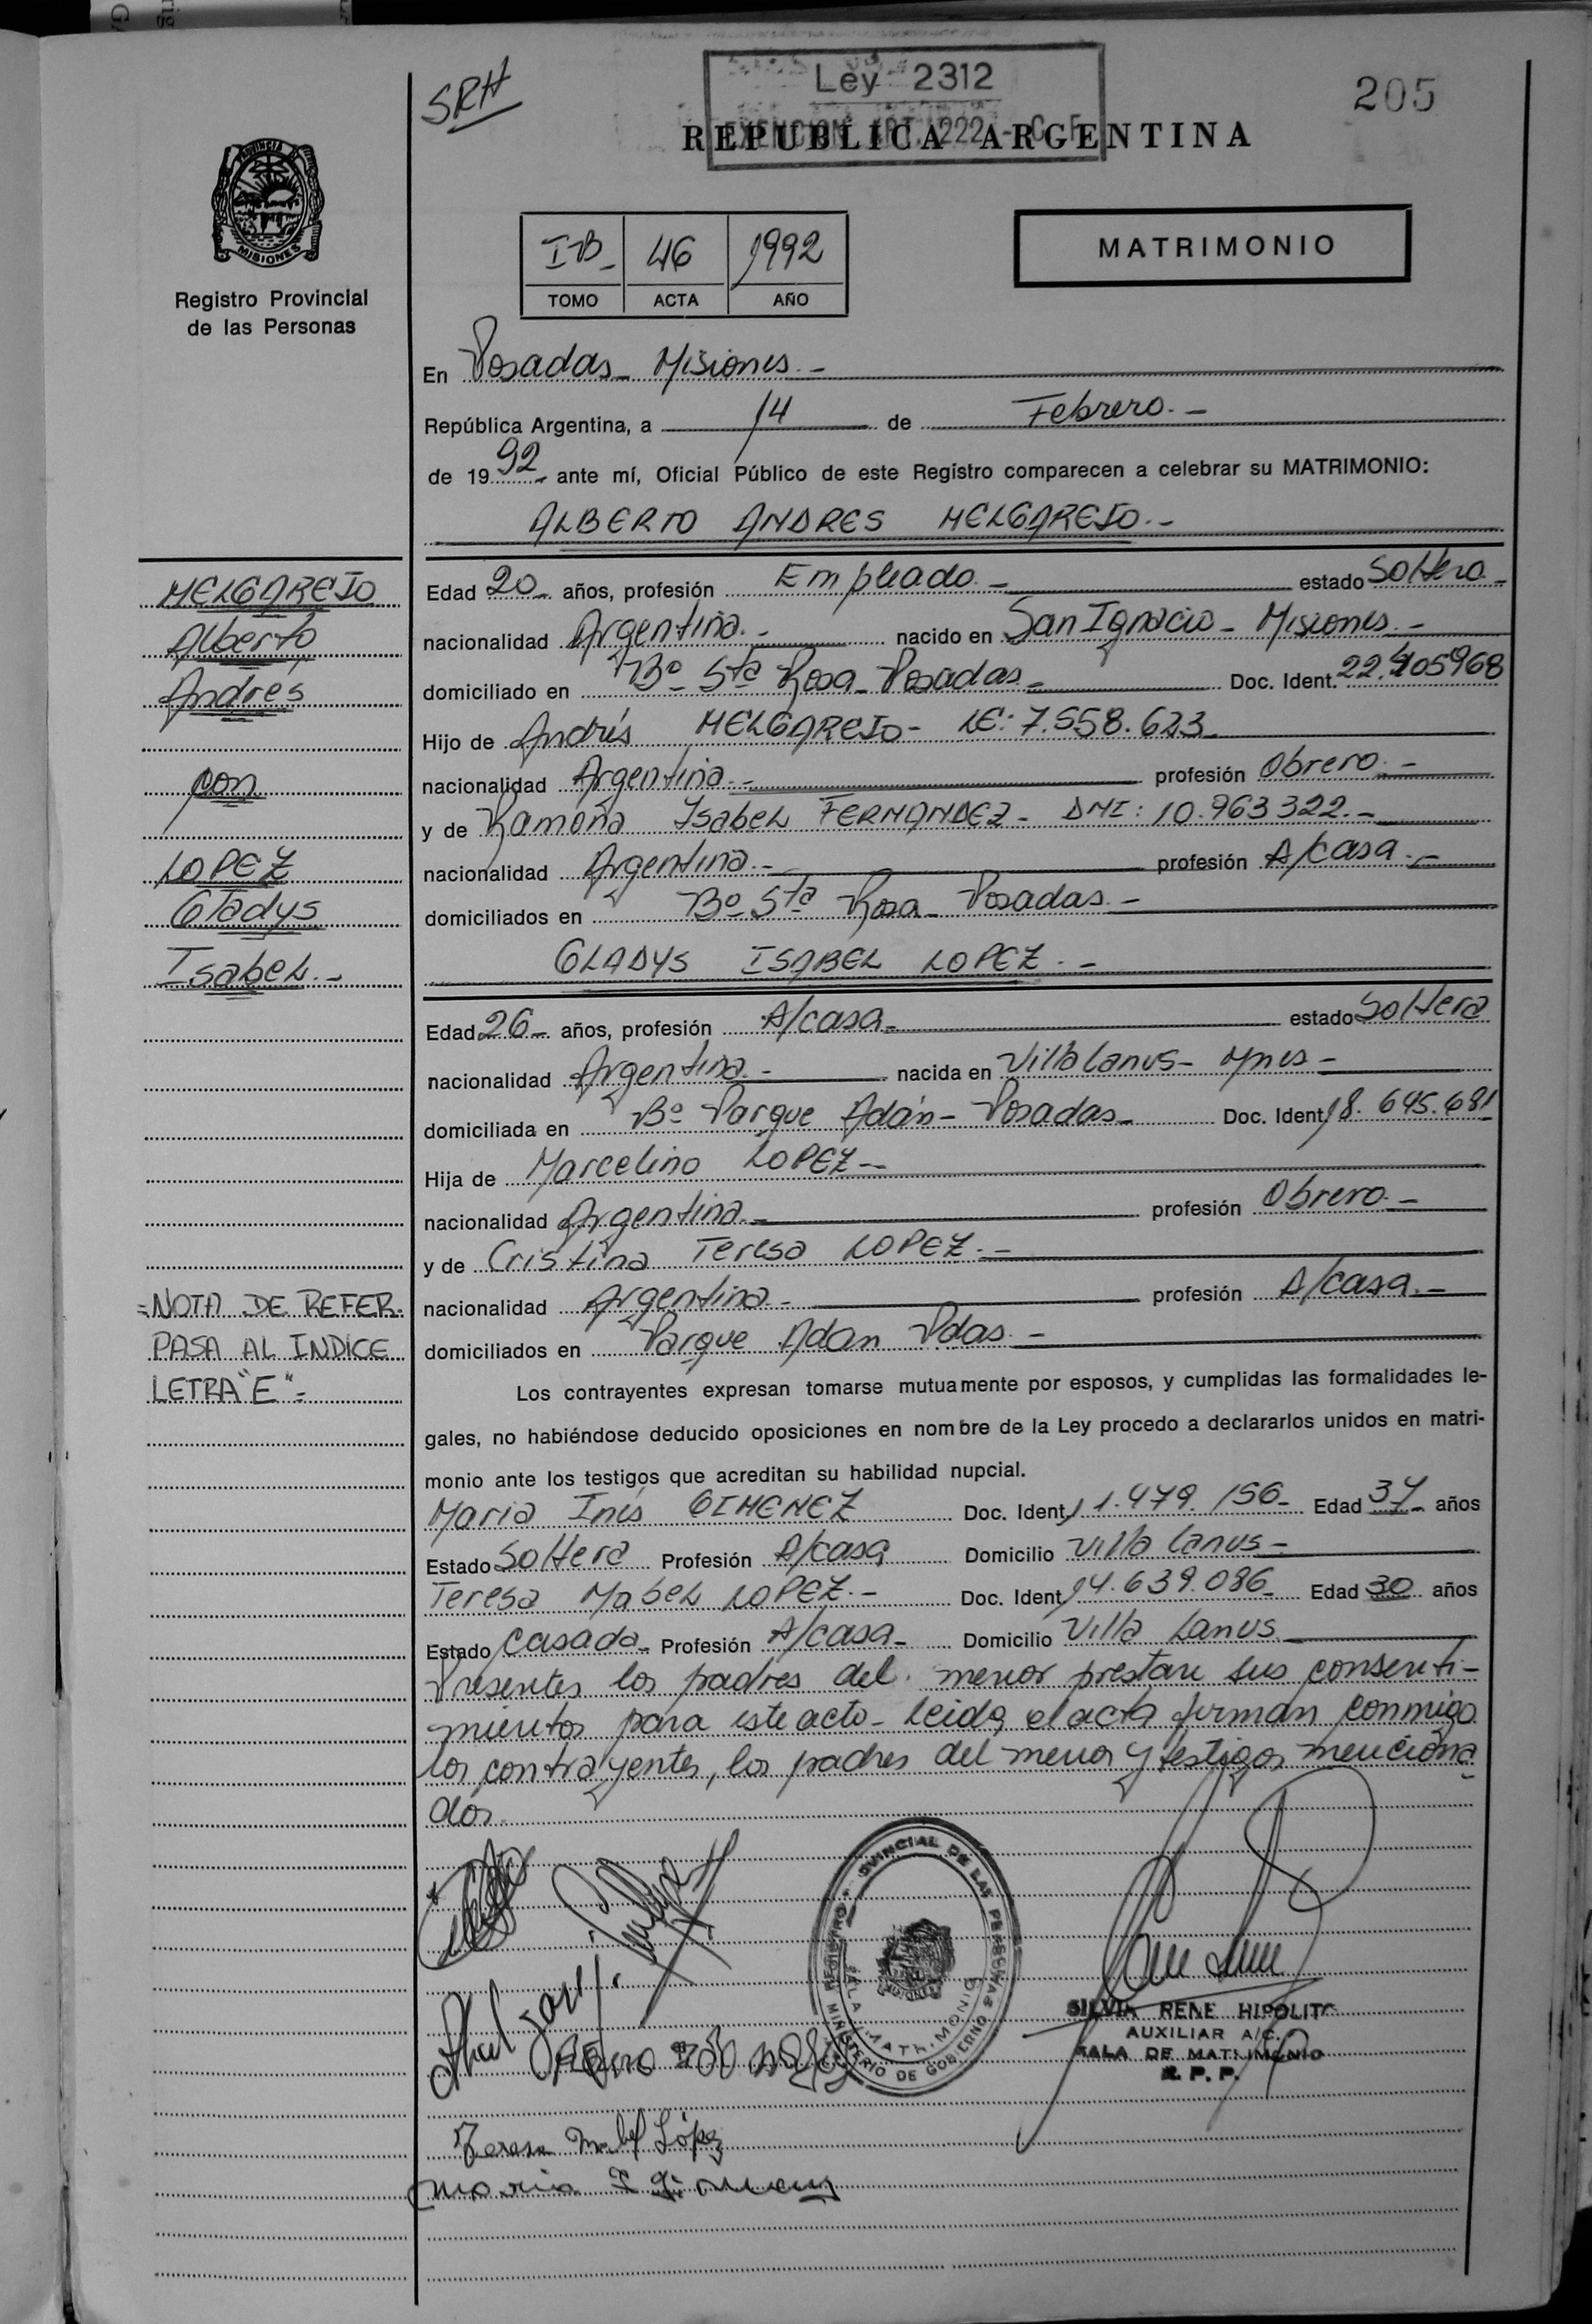 SRH
Ley 2312
EXENCION ART. 222 - C. F.
205
REPUBLICA ARGENTINA
PROVINCIA DE
MISIONES
Registro Provincial
de las Personas
IB - 46 1992
TOMO ACTA AÑO
MATRIMONIO
En Posadas - Misiones. -
República Argentina, a 14 de Febrero. -
de 19 92 - ante mí, Oficial Público de este Registro comparecen a celebrar su MATRIMONIO:
ALBERTO ANDRES MELGAREJO. -
MELGAREJO
Alberto
Andrés
con
LOPEZ
Gladys
Isabel. -
Edad 20 - años, profesión Empleado - estado Soltero -
nacionalidad Argentina. - nacido en San Ignacio - Misiones. -
domiciliado en Bº Sta Rosa - Posadas - Doc. Ident. 22.405968
Hijo de Andrés MELGAREJO - LE: 7.558.623
nacionalidad Argentina - profesión Obrero. -
y de Ramona Isabel FERNANDEZ - DNI: 10.963322. -
nacionalidad Argentina. - profesión A/casa. -
domiciliados en Bº Sta Rosa - Posadas. -
GLADYS ISABEL LOPEZ. -
Edad 26 - años, profesión A/casa - estado Soltera
nacionalidad Argentina. - nacida en Villa Lanus - Mnes -
domiciliada en Bº Parque Adán - Posadas - Doc. Ident. 18.645.681
Hija de Marcelino LOPEZ -
nacionalidad Argentina - profesión Obrero. -
y de Cristina Teresa LOPEZ. -
nacionalidad Argentina - profesión A/casa. -
domiciliados en Parque Adan Pdas. -
=NOTA DE REFER.
PASA AL INDICE
LETRA "E" =
Los contrayentes expresan tomarse mutuamente por esposos, y cumplidas las formalidades le-
gales, no habiéndose deducido oposiciones en nombre de la Ley procedo a declararlos unidos en matri-
monio ante los testigos que acreditan su habilidad nupcial.
Maria Inés GIMENEZ Doc. Ident. 11.479.156 - Edad 37 - años
Estado Soltera Profesión A/casa Domicilio Villa Lanus -
Teresa Mabel LOPEZ. - Doc. Ident. 14.639.086 Edad 30 años
Estado Casada - Profesión A/casa - Domicilio Villa Lanus
Presentes los padres del menor prestan sus consenti-
mientos para este acto - Leida el acta firman conmigo
los contrayentes, los padres del menor y testigos menciona
dos.
REGISTRO PROVINCIAL DE LAS PERSONAS
MINISTERIO DE GOBIERNO
SALA MATRIMONIO
SILVIA RENE HIPOLITO
AUXILIAR A/C.
SALA DE MATRIMONIO
R. P. P.
Teresa Mabel López
Maria I Gimenez